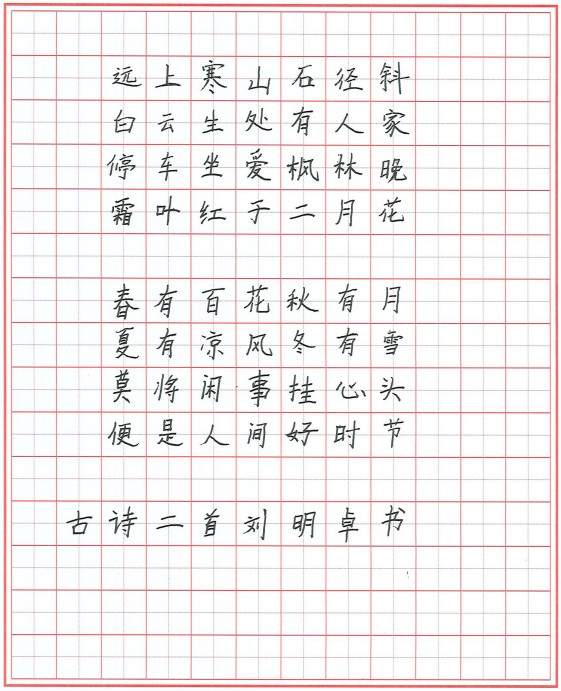 远上寒山石径斜
白云生处有人家
停车坐爱枫林晚
霜叶红于二月花
春有百花秋有月
夏有凉风冬有雪
莫将闲事挂心头
便是人间好时节
古诗二首刘明卓书